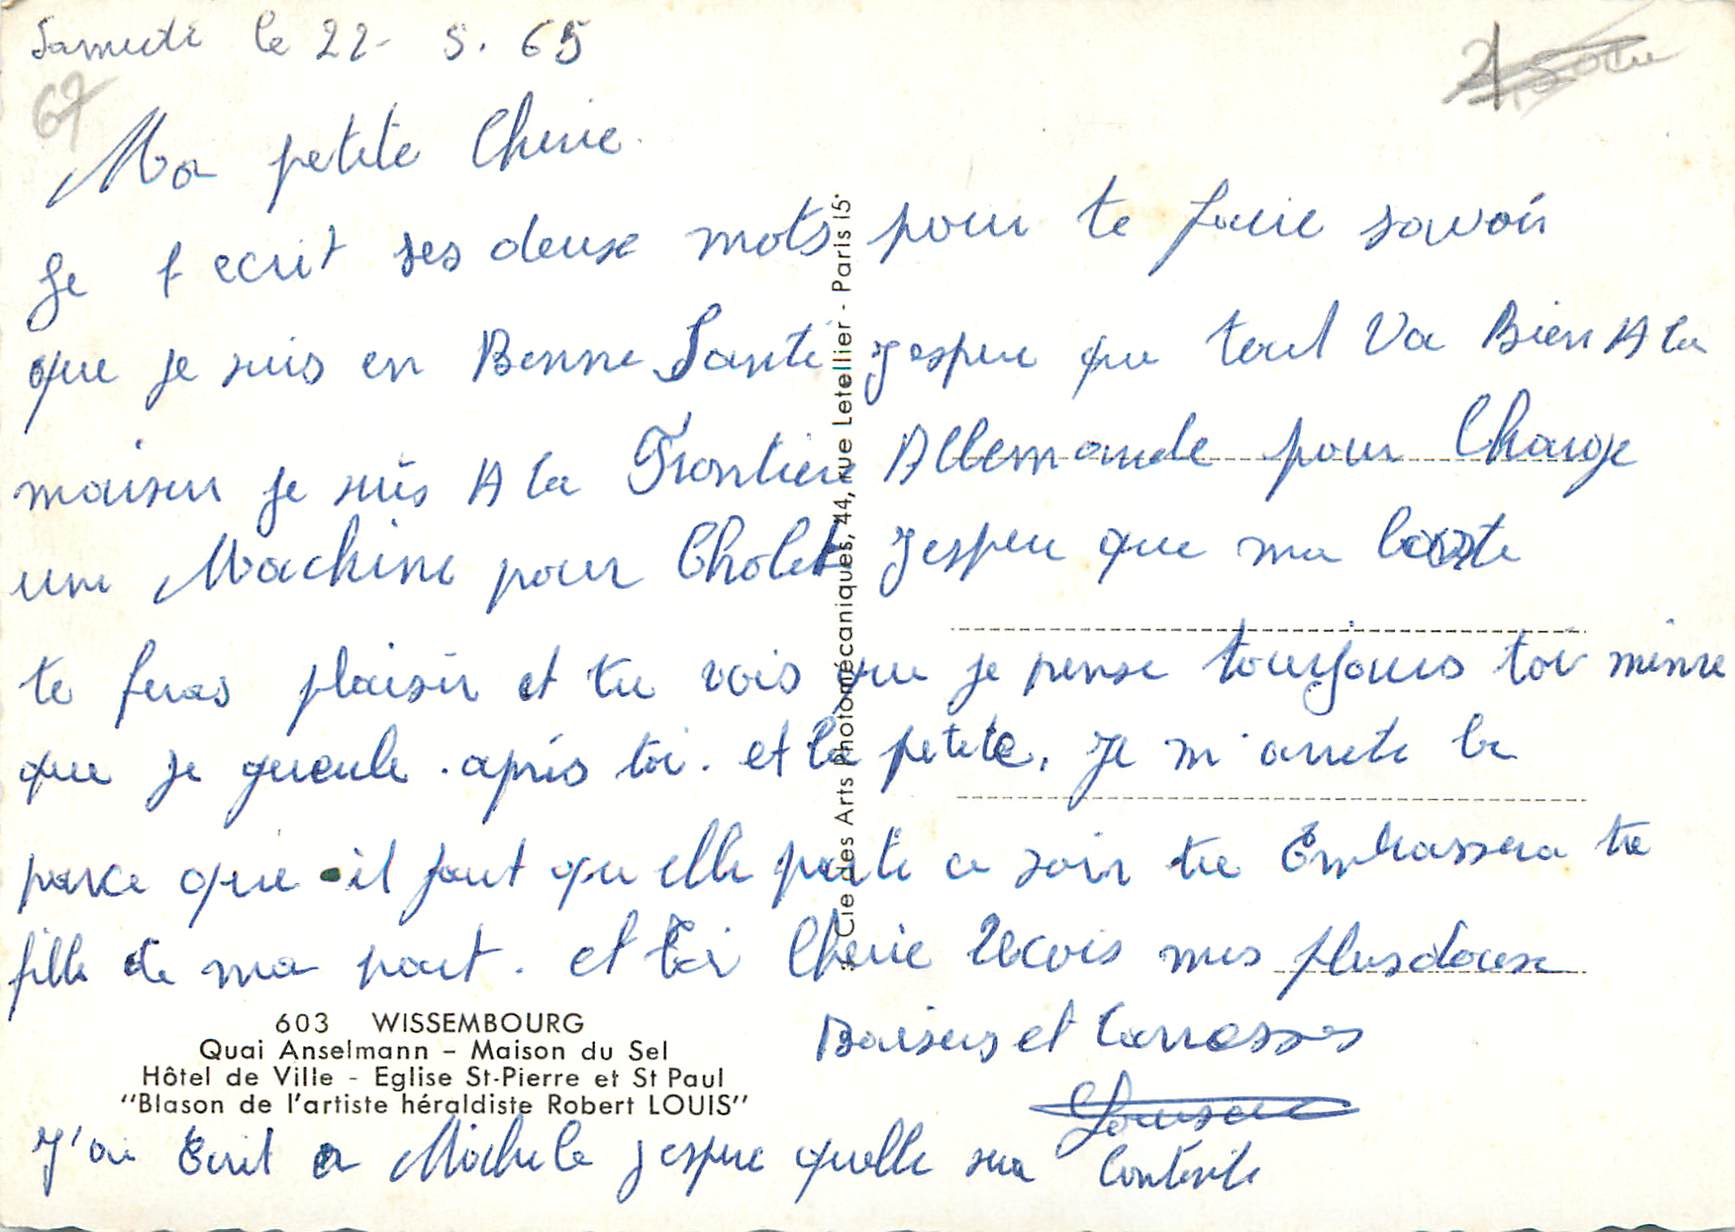 Samedi le 22- 5. 65
67
Ma petite Cherie.
Je t ecrit ses deux mots pour te faire savoir
que je suis en Bonne Santé j'espere que tout Va Bien A la
maison je suis A la Frontiere Allemande pour Charge
une Machine pour Cholet j'espere que ma carte
te feras plaisir et tu vois que je pense toujours toi même
que je gueule. après toi. et la petite. Je m'arrete la
parce que il faut qu elle parte ce soir tu Embrassera ta
fille de ma part. et toi Cherie recois mes plus doux
Baisers et Carresses
J'ai Ecrit a Michele j espere quelle sera Contente
603 WISSEMBOURG
Quai Anselmann – Maison du Sel
Hôtel de Ville - Eglise St-Pierre et St Paul
"Blason de l'artiste héraldiste Robert LOUIS"
Cie des Arts Photomécaniques, 44, rue Letellier - Paris 15e